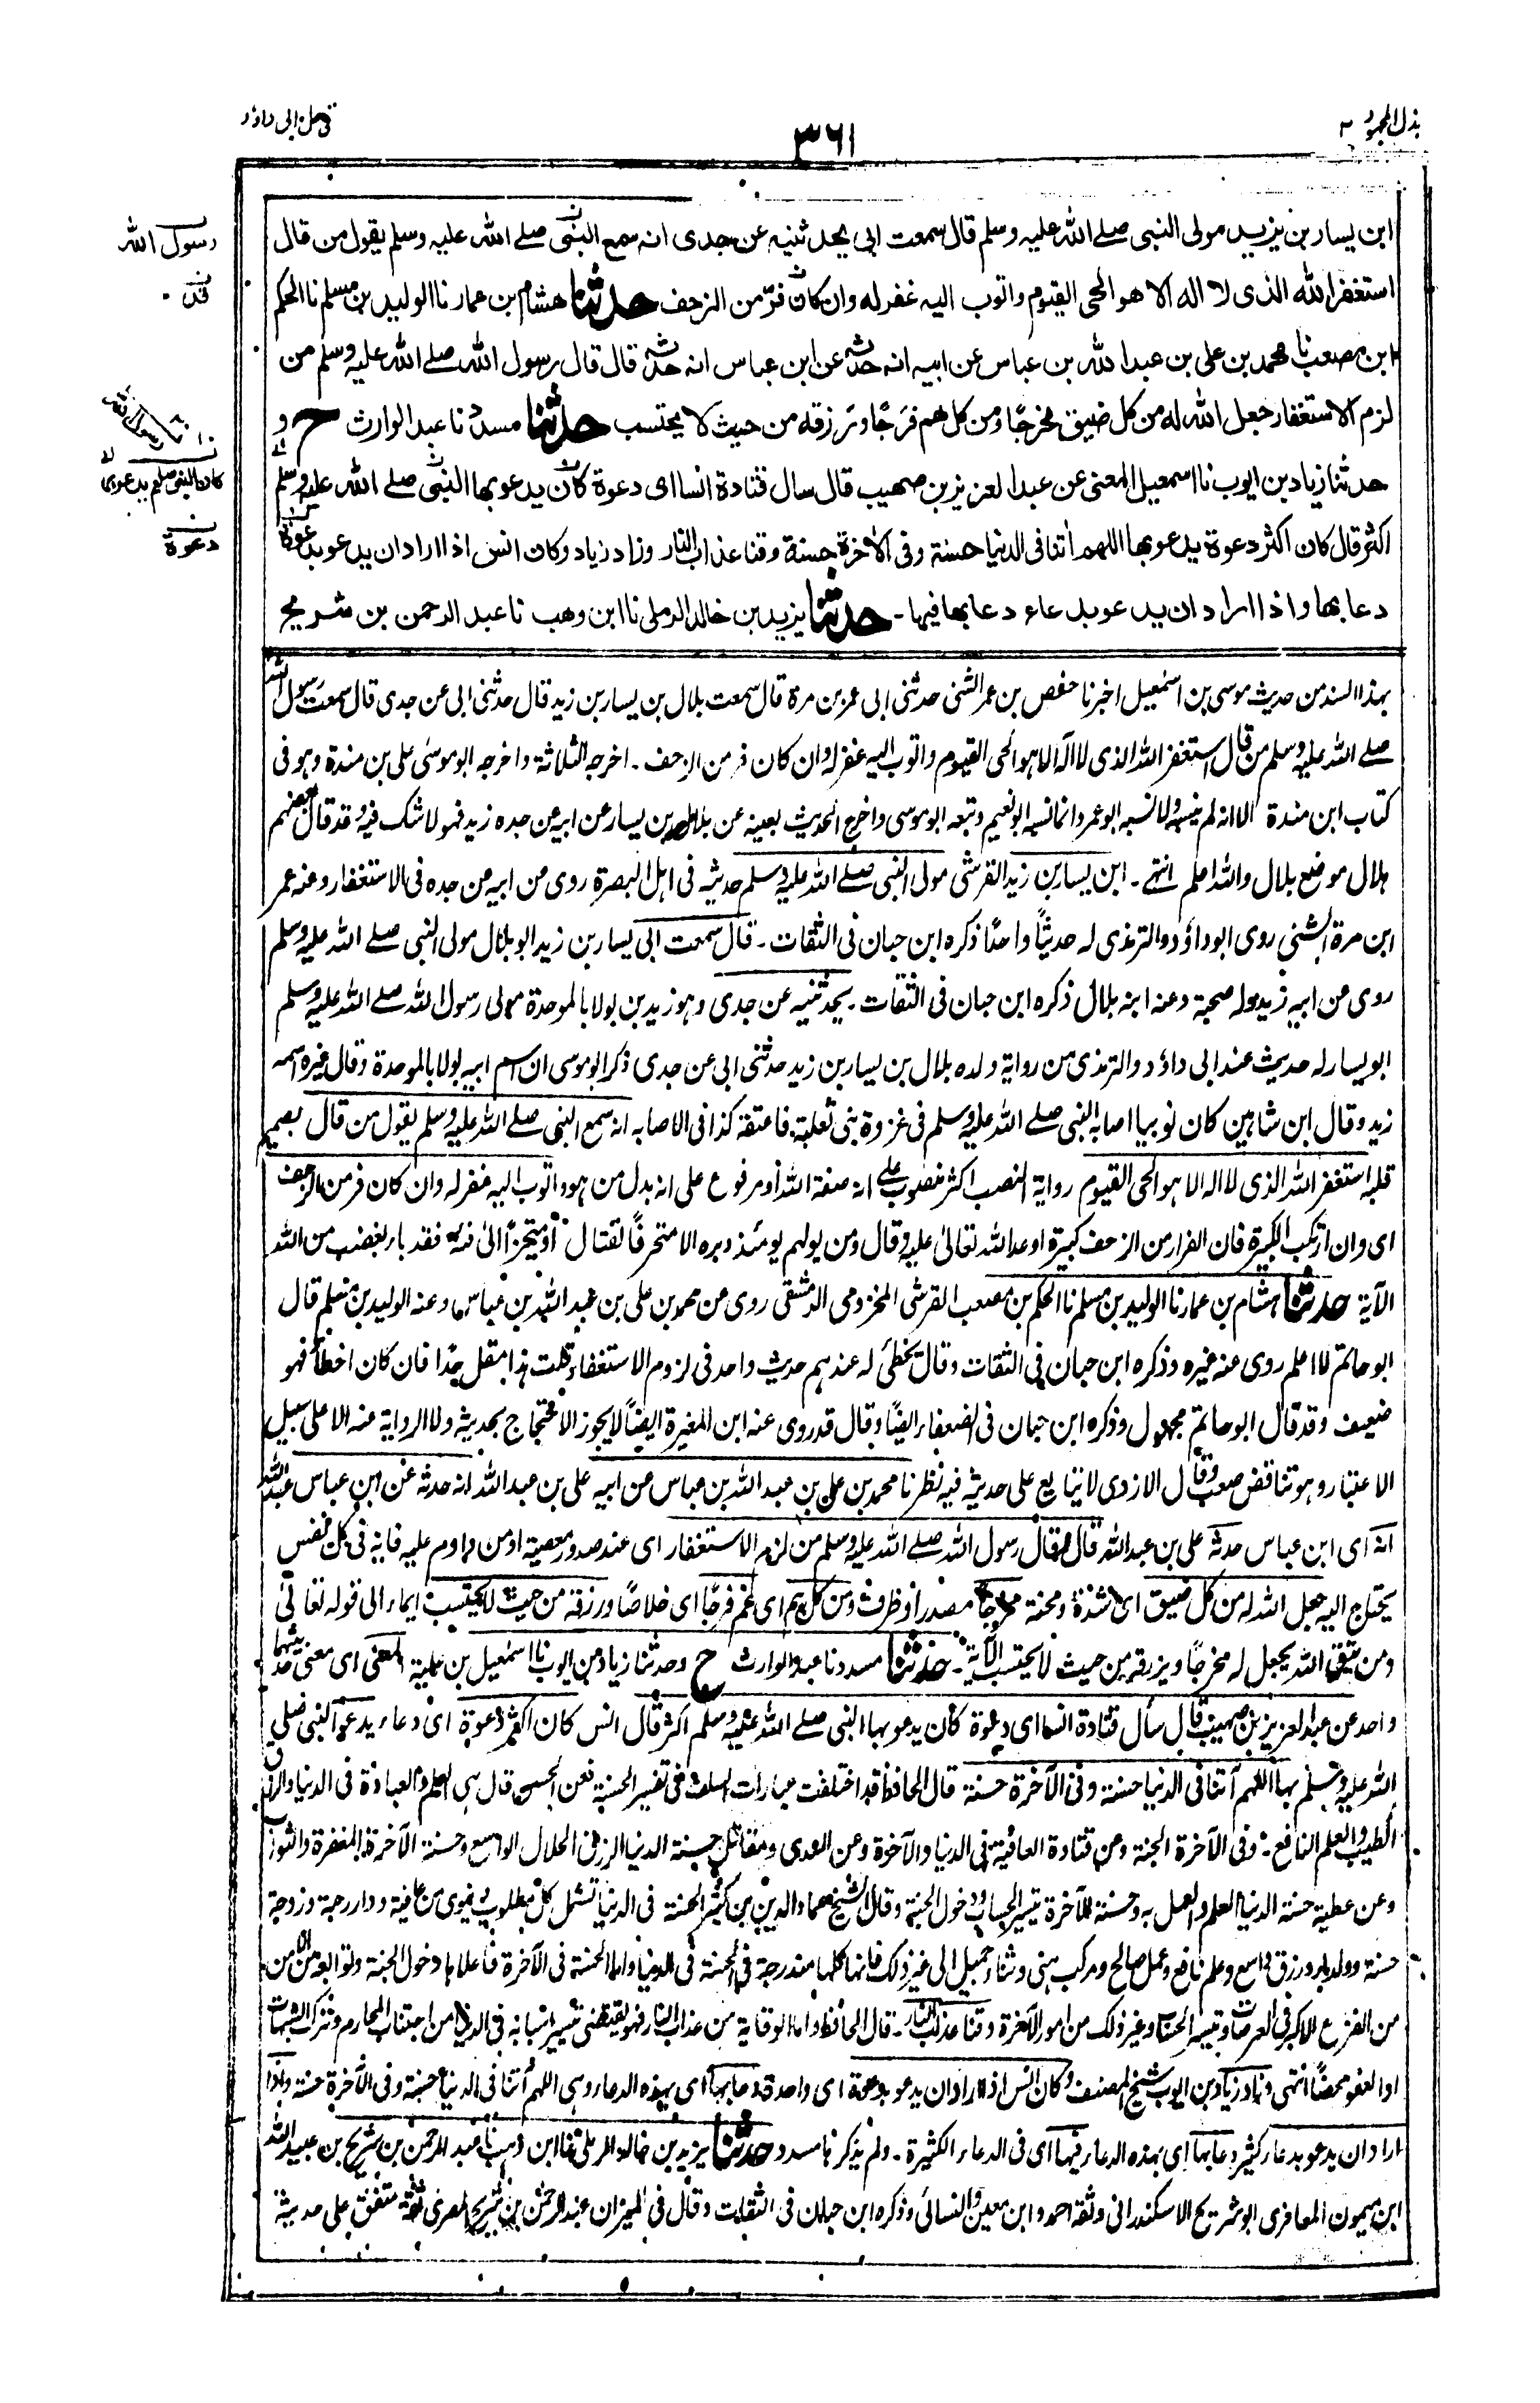 بذل المجهود ٢
٣٦١
فى حل ابى داؤد
ابن يسار بن يزيد مولى النبى صلے الله عليه وسلم قال سمعت ابى يحدثنيه عن جدى انه سمع النبى صلے الله عليه وسلم يقول من قال
استغفر الله الذى لا اله الا هو الحى القيوم واتوب اليه غفر له وان كان فرّ من الزحف حدثنا هشام بن عمار نا الوليد بن مسلم نا الحكم
ابن مصعب نا محمد بن على بن عبد الله بن عباس عن ابيه انه حدثه عن ابن عباس انه حدثه قال قال رسول الله صلے الله عليه وسلم من
لزم الاستغفار جعل الله له من كل ضيق مخرجًا ومن كل هم فرَجًا ورزقه من حيث لا يحتسب حدثنا مسدد نا عبد الوارث ح و
حدثنا زياد بن ايوب نا اسمعيل المعنى عن عبد العزيز بن صهيب قال سال قتادة انسا اى دعوة كان يدعو بها النبى صلے الله عليه وسلم
اكثر قال كان اكثر دعوة يدعو بها اللهم أتنا فى الدنيا حسنة وفى الأخرة حسنة وقنا عذاب النار وزاد زياد وكان انس اذا اراد ان يدعو بدعوة
دعا بها واذا اراد ان يدعو بدعاء دعا بها فيها - حدثنا يزيد بن خالد الرملى نا ابن وهب نا عبد الرحمن بن شريح
رسول الله
كان النبى صلعم يدعو بها
دعوة
بهذا السند من حديث موسى بن اسمعيل اخبرنا حفص بن عمر الشنى حدثنى ابى عمر بن مرة قال سمعت بلال بن يسار بن زيد قال حدثنى ابى عن جدى قال سمعت رسول الله
صلے الله عليه وسلم من قال استغفر الله الذى لا اله الا هو الحى القيوم واتوب اليه غفر له وان كان فر من الزحف - اخرجه الثلاثة واخرجه ابو موسى على بن مندة وهو فى
كتاب ابن مندة الا انه لم ينسبه ولا نسبه ابو عمر وانما نسبه ابو نعيم وتبعه ابو موسى واخرج الحديث بعينه عن بلال بن يسار عن ابيه عن جده زيد فهو لا شك فيه وقد قال بعضهم
هلال موضع بلال والله اعلم انتهے - ابن يسار بن زيد القرشى مولى النبى صلے الله عليه وسلم حديثه فى اهل البصرة روى عن ابيه عن جده فى الاستغفار وعنه عمر
ابن مرة الشنى روى ابو داؤد والترمذى له حديثًا واحدًا ذكره ابن حبان فى الثقات - قال سمعت ابى يسار بن زيد ابو بلال مولى النبى صلے الله عليه وسلم
روى عن ابيه زيد وله صحبة وعنه ابنه بلال ذكره ابن حبان فى الثقات - يحدثنيه عن جدى وهو زيد بن بولا بالموحدة مولى رسول الله صلے الله عليه وسلم
ابو يسار له حديث عند ابى داؤد والترمذى من رواية ولده بلال بن يسار بن زيد حدثنى ابى عن جدى ذكر ابو موسى ان اسم ابيه بولا بالموحدة وقال غيره اسمه
زيد وقال ابن شاهين كان نوبيا اصابه النبى صلے الله عليه وسلم فى غزوة بنى ثعلبة فاعتقه كذا فى الاصابه انه سمع النبى صلے الله عليه وسلم يقول من قال بصميم
قلبه استغفر الله الذى لا اله الا هو الحى القيوم رواية النصب اكثر منصوب على انه صفة الله او مرفوع على انه بدل من هو واتوب اليه غفر له وان كان فر من الزحف
اى وان ارتكب الكبيرة فان الفرار من الزحف كبيرة اوعد الله تعالى عليه وقال ومن يولهم يومئذ دبره الا متحرفًا لقتال أو متحيزًا الى فئة فقد باء بغضب من الله
الآية حدثنا هشام بن عمار نا الوليد بن مسلم نا الحكم بن مصعب القرشى المخزومى الدمشقى روى عن محمد بن على بن عبد الله بن عباس وعنه الوليد بن مسلم قال
ابو حاتم لا اعلم روى عنه غيره وذكره ابن حبان فى الثقات وقال يخطئ له عندهم حديث واحد فى لزوم الاستغفار قلت هذا مقل جدا فان كان اخطأ فهو
ضعيف وقد قال ابو حاتم مجهول وذكره ابن حبان فى الضعفاء ايضًا وقال قد روى عنه ابن المغيرة ايضًا لا يجوز الاحتجاج بحديثه ولا الرواية عنه الا على سبيل
الاعتبار وهو تناقض صعب وقال الازدى لا يتابع على حديثه فيه نظر نا محمد بن على بن عبد الله بن عباس عن ابيه على بن عبد الله انه حدثه عن ابن عباس عبد الله
انه اى ابن عباس حدثه على بن عبد الله قال قال رسول الله صلے الله عليه وسلم من لزم الاستغفار اى عند صدور معصية او من داوم عليه فانه فى كل نفس
يحتاج اليه جعل الله له من كل ضيق اى شدة ومحنة مخرجًا مصدر أو ظرف ومن كل هم اى غم فرجًا اى خلاصًا ورزقه من حيث لا يحتسب ايماء الى قوله تعالى
ومن يتق الله يجعل له مخرجًا ويرزقه من حيث لا يحتسب الآية - حدثنا مسدد نا عبد الوارث ح وحدثنا زياد بن ايوب نا اسمعيل بن علية المعنى اى معنى حديثهما
واحد عن عبد العزيز بن صهيب قال سأل قتادة انسا اى دعوة كان يدعو بها النبى صلے الله عليه وسلم اكثر قال انس كان اكثر دعوة اى دعاء يدعو النبى صلى
الله عليه وسلم بها اللهم آتنا فى الدنيا حسنة وفى الآخرة حسنة قال الحافظ قد اختلفت عبارات السلف فى تفسير الحسنة فعن الحسن قال هى العلم والعبادة فى الدنيا والرزق
الطيب والعلم النافع - وفى الآخرة الجنة وعن قتادة العافية فى الدنيا والآخرة وعن السدى ومقاتل حسنة الدنيا الرزق الحلال الواسع وحسنة الآخرة المغفرة والثواب
وعن عطية حسنة الدنيا العلم والعمل به وحسنة الآخرة تيسير الحساب ودخول الجنة وقال الشيخ عماد الدين بن كثير الحسنة فى الدنيا تشمل كل مطلوب دنيوى من عافية ودار رحبة وزوجة
حسنة وولد بار ورزق واسع وعلم نافع وعمل صالح ومركب هنى وثناء جميل الى غير ذلك فانها كلها مندرجة فى الحسنة فى الدنيا واما الحسنة فى الآخرة فأعلاها دخول الجنة وتوابعه من الامن
من الفزع الاكبر فى العرصات وتيسير الحساب وغير ذلك من امور الآخرة وقنا عذاب النار - قال الحافظ واما الوقاية من عذاب النار فهو يقتضى تيسير اسبابه فى الدنيا من اجتناب المحارم وترك الشبهات
او العفو محضًا انتهى وزاد زياد بن ايوب شيخ المصنف وكان انس اذا اراد ان يدعو بدعوة اى واحدة دعا بها اى بهذه الدعاء وهى اللهم أتنا فى الدنيا حسنة وفى الآخرة حسنة واذا
اراد ان يدعو بدعاء كثير دعا بها اى بهذه الدعاء فيها اى فى الدعاء الكثيرة - ولم يذكرها مسدد حدثنا يزيد بن خالد الرملى نا ابن وهب نا عبد الرحمن بن شريح بن عبيد الله
ابن ميمون المعافرى ابو شريح الاسكندرانى وثقه احمد وابن معين والنسائى وذكره ابن حبان فى الثقات وقال فى الميزان عبد الرحمن بن شريح المصرى ثقة متفق على حديثه